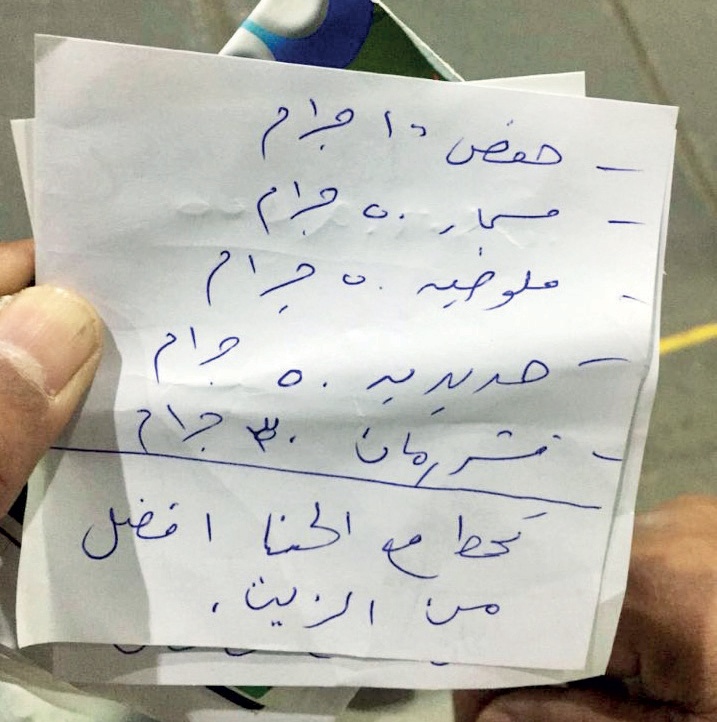 - حفض ١٥ جرام
- مسمار ٥٠ جرام
- ملوخيه ٥٠ جرام
- حديديه ٥٠ جرام
- قشر رمان ٣٠ جرام
تحط مع الحنا افضل
من الزيت.